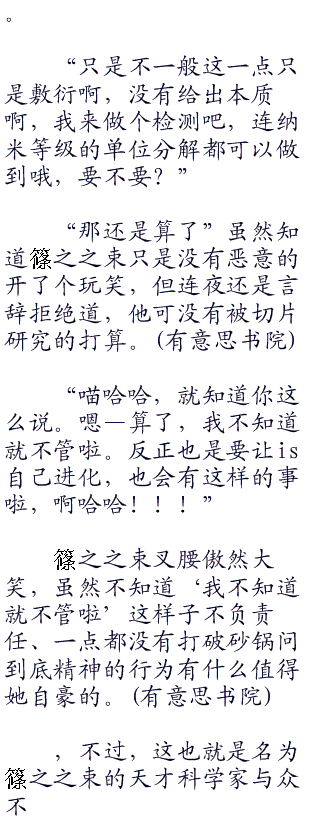 。
“只是不一般这一点只
是敷衍啊，没有给出本质
啊，我来做个检测吧，连纳
米等级的单位分解都可以做
到哦，要不要？”
“那还是算了”虽然知
道篠之之束只是没有恶意的
开了个玩笑，但连夜还是言
辞拒绝道，他可没有被切片
研究的打算。(有意思书院)
“喵哈哈，就知道你这
么说。嗯—算了，我不知道
就不管啦。反正也是要让is
自己进化，也会有这样的事
啦，啊哈哈！！！”
篠之之束叉腰傲然大
笑，虽然不知道‘我不知道
就不管啦’这样子不负责
任、一点都没有打破砂锅问
到底精神的行为有什么值得
她自豪的。(有意思书院)
，不过，这也就是名为
篠之之束的天才科学家与众
不